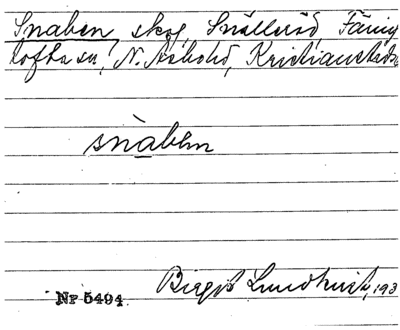 Snaben, skog, Snälleröd, Färing
tofta sn, N. Åsbo hd, Kristianstads
snàben
Birgit Lundkvist, 193
Nr 5494